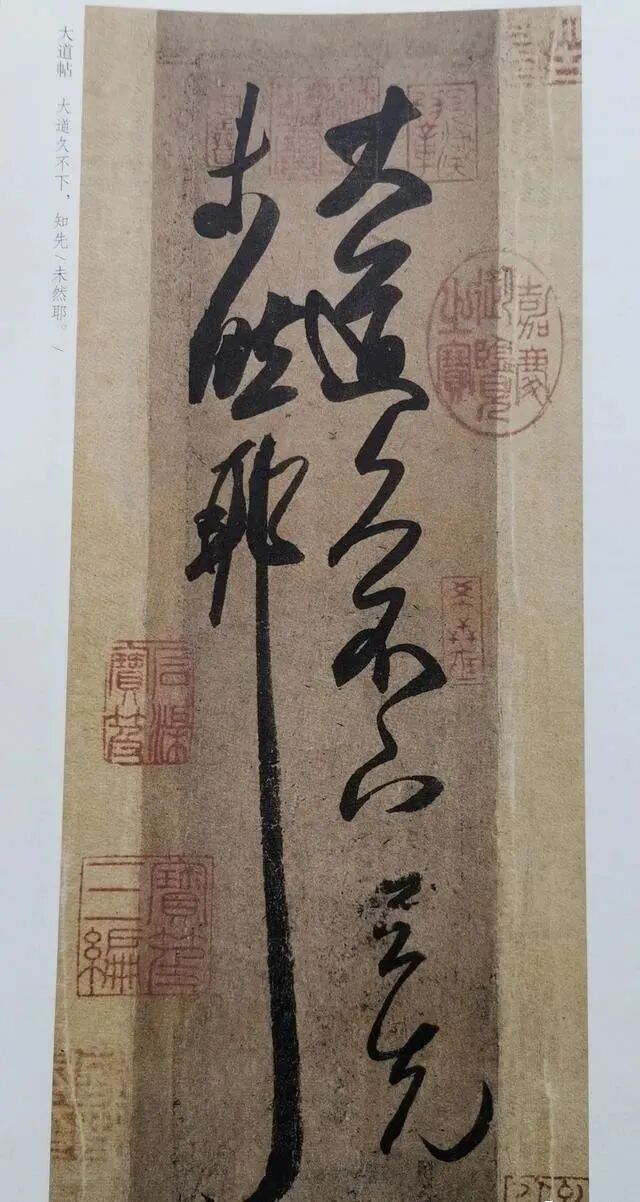 大道久不下知先
未然耶
嘉慶
御覽
之寶
石渠
寶笈
寶笈
三編
大道帖　大道久不下，知先/未然耶。/